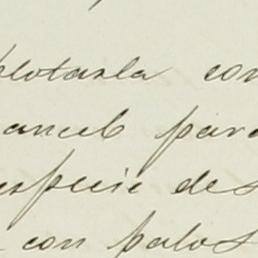 plotarla con
ancel para
especie de
con palos